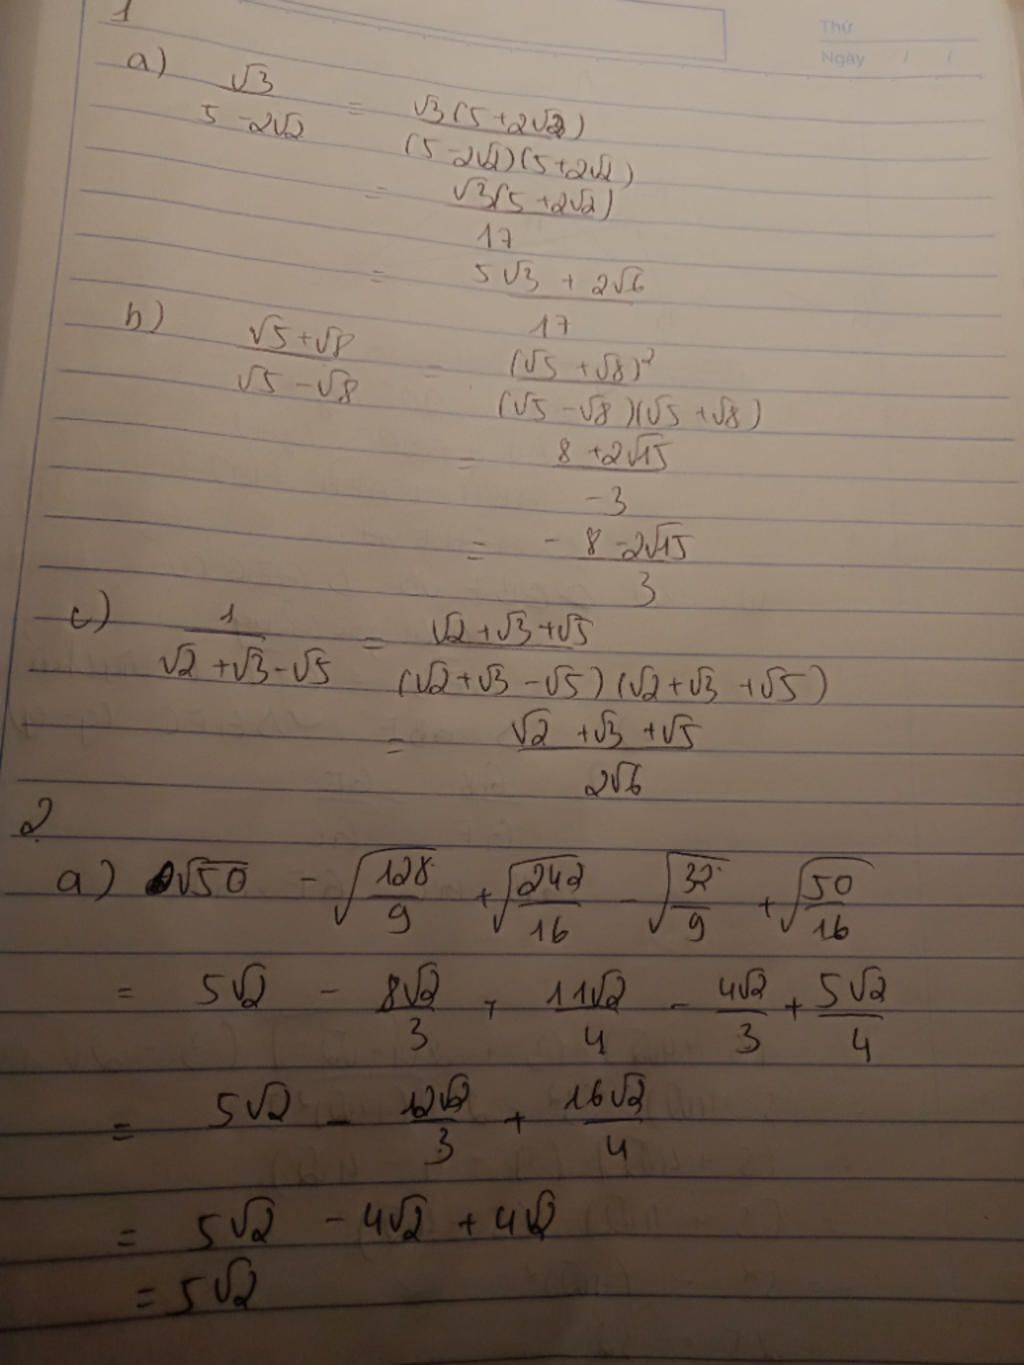 1
Thứ
Ngày / /
a) √3/(5 - 2√2) = √3(5 + 2√2)/((5 - 2√2)(5 + 2√2))
= √3(5 + 2√2)/17
= (5√3 + 2√6)/17
b) (√5 + √8)/(√5 - √8) = (√5 + √8)²/((√5 - √8)(√5 + √8))
= (8 + 2√15)/-3
= (-8 - 2√15)/3
c) 1/(√2 + √3 - √5) = (√2 + √3 + √5)/((√2 + √3 - √5)(√2 + √3 + √5))
= (√2 + √3 + √5)/(2√6)
2
a) √50 - √(128/9) + √(242/16) - √(32/9) + √(50/16)
= 5√2 - 8√2/3 + 11√2/4 - 4√2/3 + 5√2/4
= 5√2 - 12√2/3 + 16√2/4
= 5√2 - 4√2 + 4√2
= 5√2